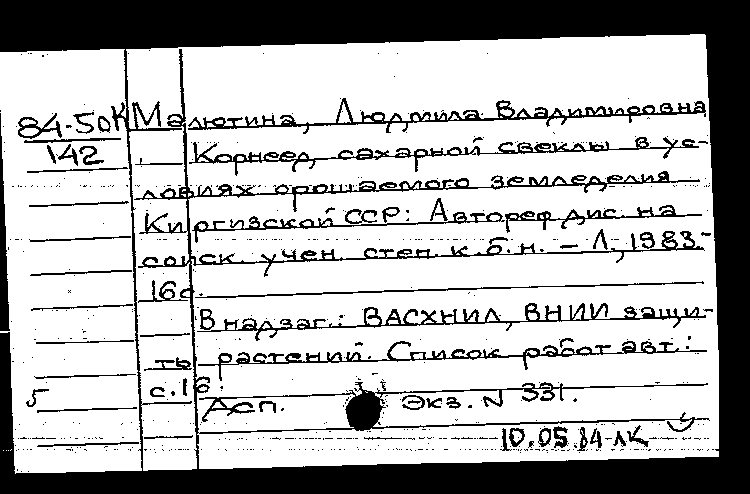 84-50К Малютина, Людмила Владимировна
142
Корнеед сахарной свеклы в ус-
ловиях орошаемого земледелия
Киргизской ССР: Автореф дис. на
соиск. учен. степ. к.б.н. – Л., 1983.-
16с.
В надзаг.: ВАСХНИЛ, ВНИИ защи-
ты растений. Список работ авт.:
с.16.
5
Асп. Экз. N 331.
10.05.84 ЛК